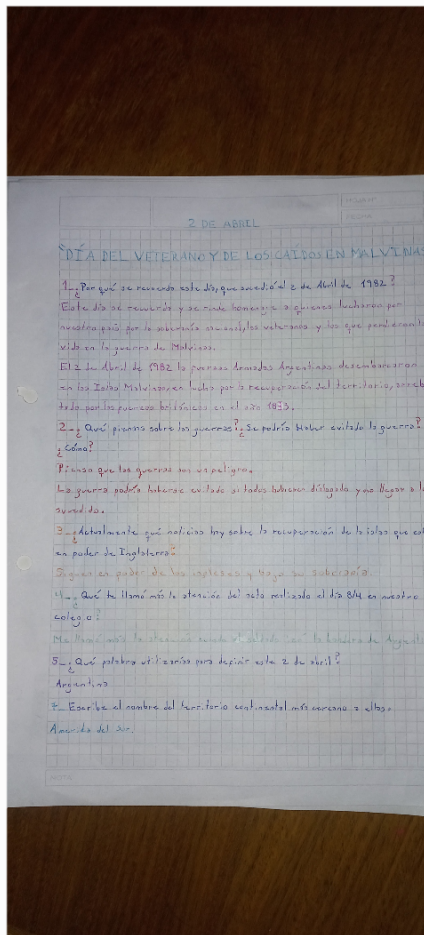 2 DE ABRIL
"DÍA DEL VETERANO Y DE LOS CAÍDOS EN MALVINAS
1_ ¿Por qué se recuerda este día, que sucedió el 2 de Abril de 1982?
Este día se recuerda y se rinde homenaje a quienes lucharon por
nuestro país por la soberanía nacional, los veteranos y los que perdieron l
vida en la guerra de Malvinas.
El 2 de Abril de 1982 la fuerzas Armadas Argentinas desembarcaron
en las Islas Malvinas en lucha por la recuperación del territorio,
todo por las fuerzas británicas en el año 1833.
2_ ¿Qué piensas sobre las guerras? ¿Se podría haber evitado la guerra?
¿Cómo?
Pienso que las guerras son un peligro.
La guerra podría haberse evitado si todos hubiesen dialogado y no llegar a l
sucedido.
3_ ¿Actualmente qué noticias hay sobre la recuperación de la islas que es
en poder de Inglaterra?
Siguen en poder de los ingleses y su soberanía
4_ ¿Qué te llamó más la atención del acto realizado el día 8/4 en nuestro
colegio?
Me llamó más la atención la de Argent
5_ ¿Qué palabra utilizarías para definir este 2 de abril?
Argentina
7_ Escribe el nombre del territorio continental más cercano a ellas.
America del sur.
NOTA
FECHA